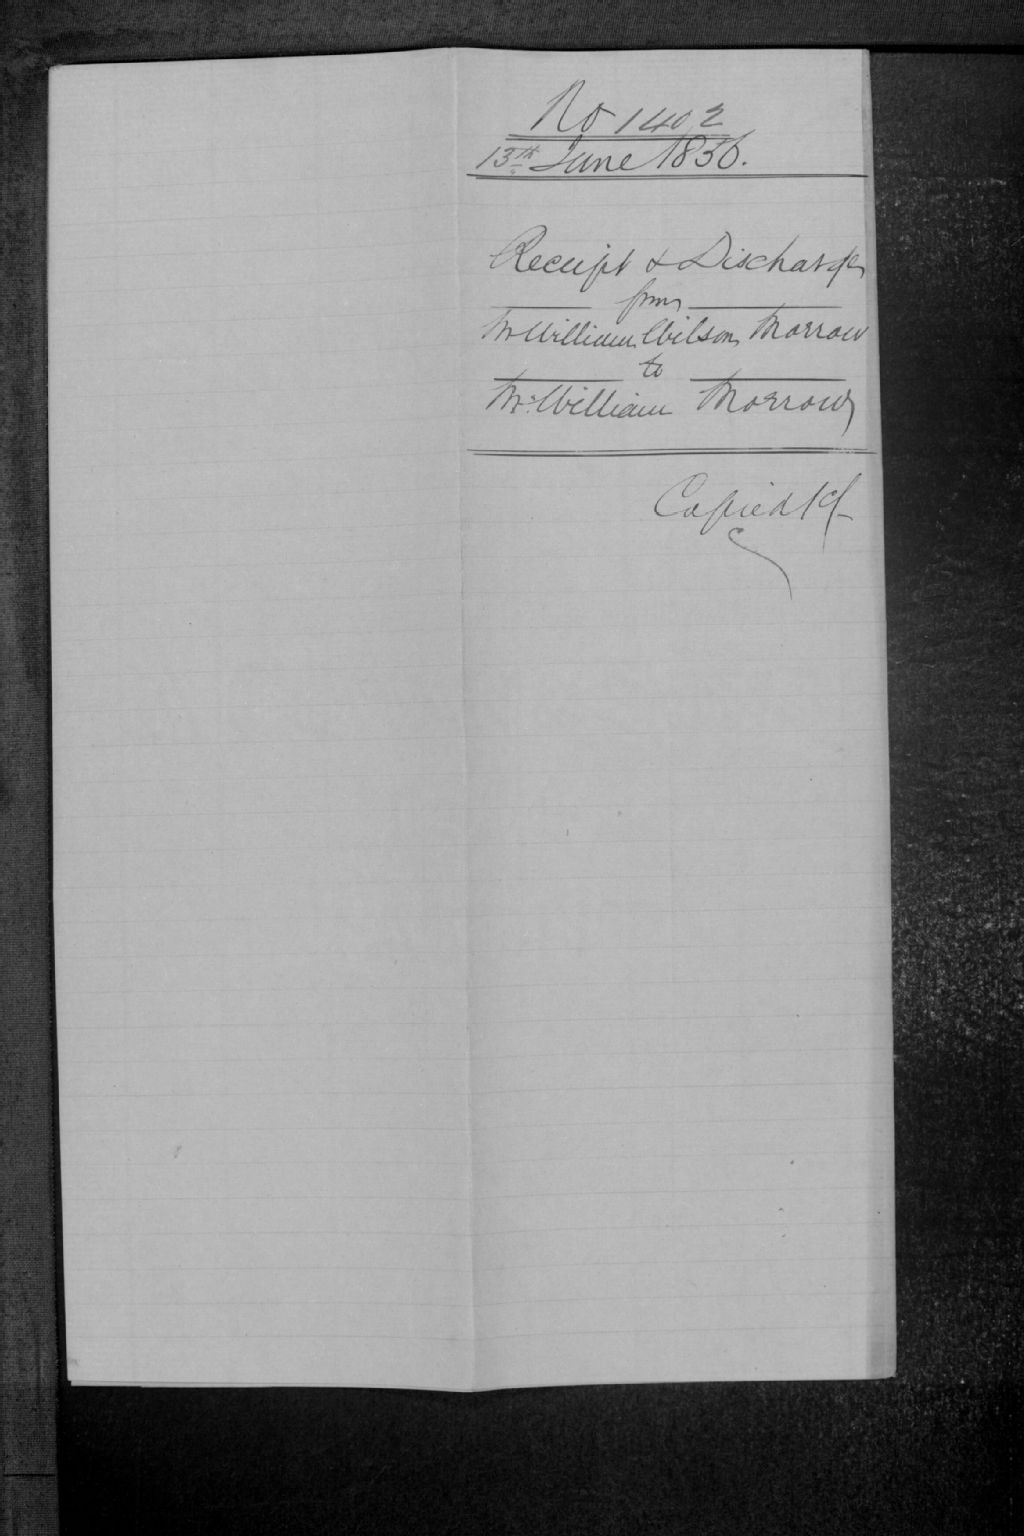 No 1402
13th June 1836.
Receipt & Discharge
from
Mr William Wilson Morrow
to
Mr William Morrow
Copied